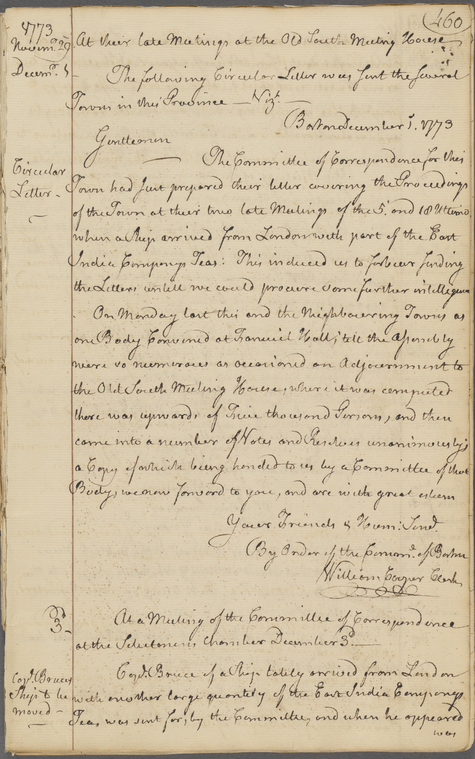 460
1773
Novem.r 29
At their late Meetings at the Old South Meeting House
Decem.r 1
The following Circular Letter was sent the several
Towns in this Province — Viz.t
Boston December 1. 1773
Gentlemen
Circular
Letter
The Committee of Correspondence for this
Town had just prepared their letter covering the Proceedings
of the Town at their two late Meetings of the 5.th and 18 Ultimo
when a Ship arrived from London with part of the East
India Companys Teas: This induced us to forbear sending
the Letters untill we could procure some further intelligence
On Monday last this and the Neighbouring Towns as
one Body Convened at Faneuil Hall, till the Assembly
were so numerous as occasioned an Adjournment to
the Old South Meeting House, where it was computed
there was upwards of Five thousand Persons, and then
came into a number of Votes and Resolves unanimously;
a Copy of which being handed to us by a Committee of that
Body, we now forward to you, and are with great esteem
Your Friends & Hum: Serv.ts
By Order of the Comm.ee of Boston
William Cooper Clerk
3
At a Meeting of the Committee of Correspondence
at the Selectmens Chamber December 3.d
Cap.t Bruces
Ship to be
moved
Cap.t Bruce of a Ship lately arrived from London
with another large quantity of the East India Companys
Teas, was sent for, by the Committee, and when he appeared
was